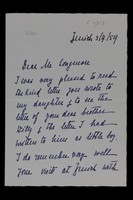 Zurich 2/9/59
Dear Mr Longmore
I was very pleased to read
the kind letter you wrote to
my daughter & to see the
letter of your dear brother
Willy & the letter I had
written to him as little boy.
I do remember very well
your visit at Zurich with